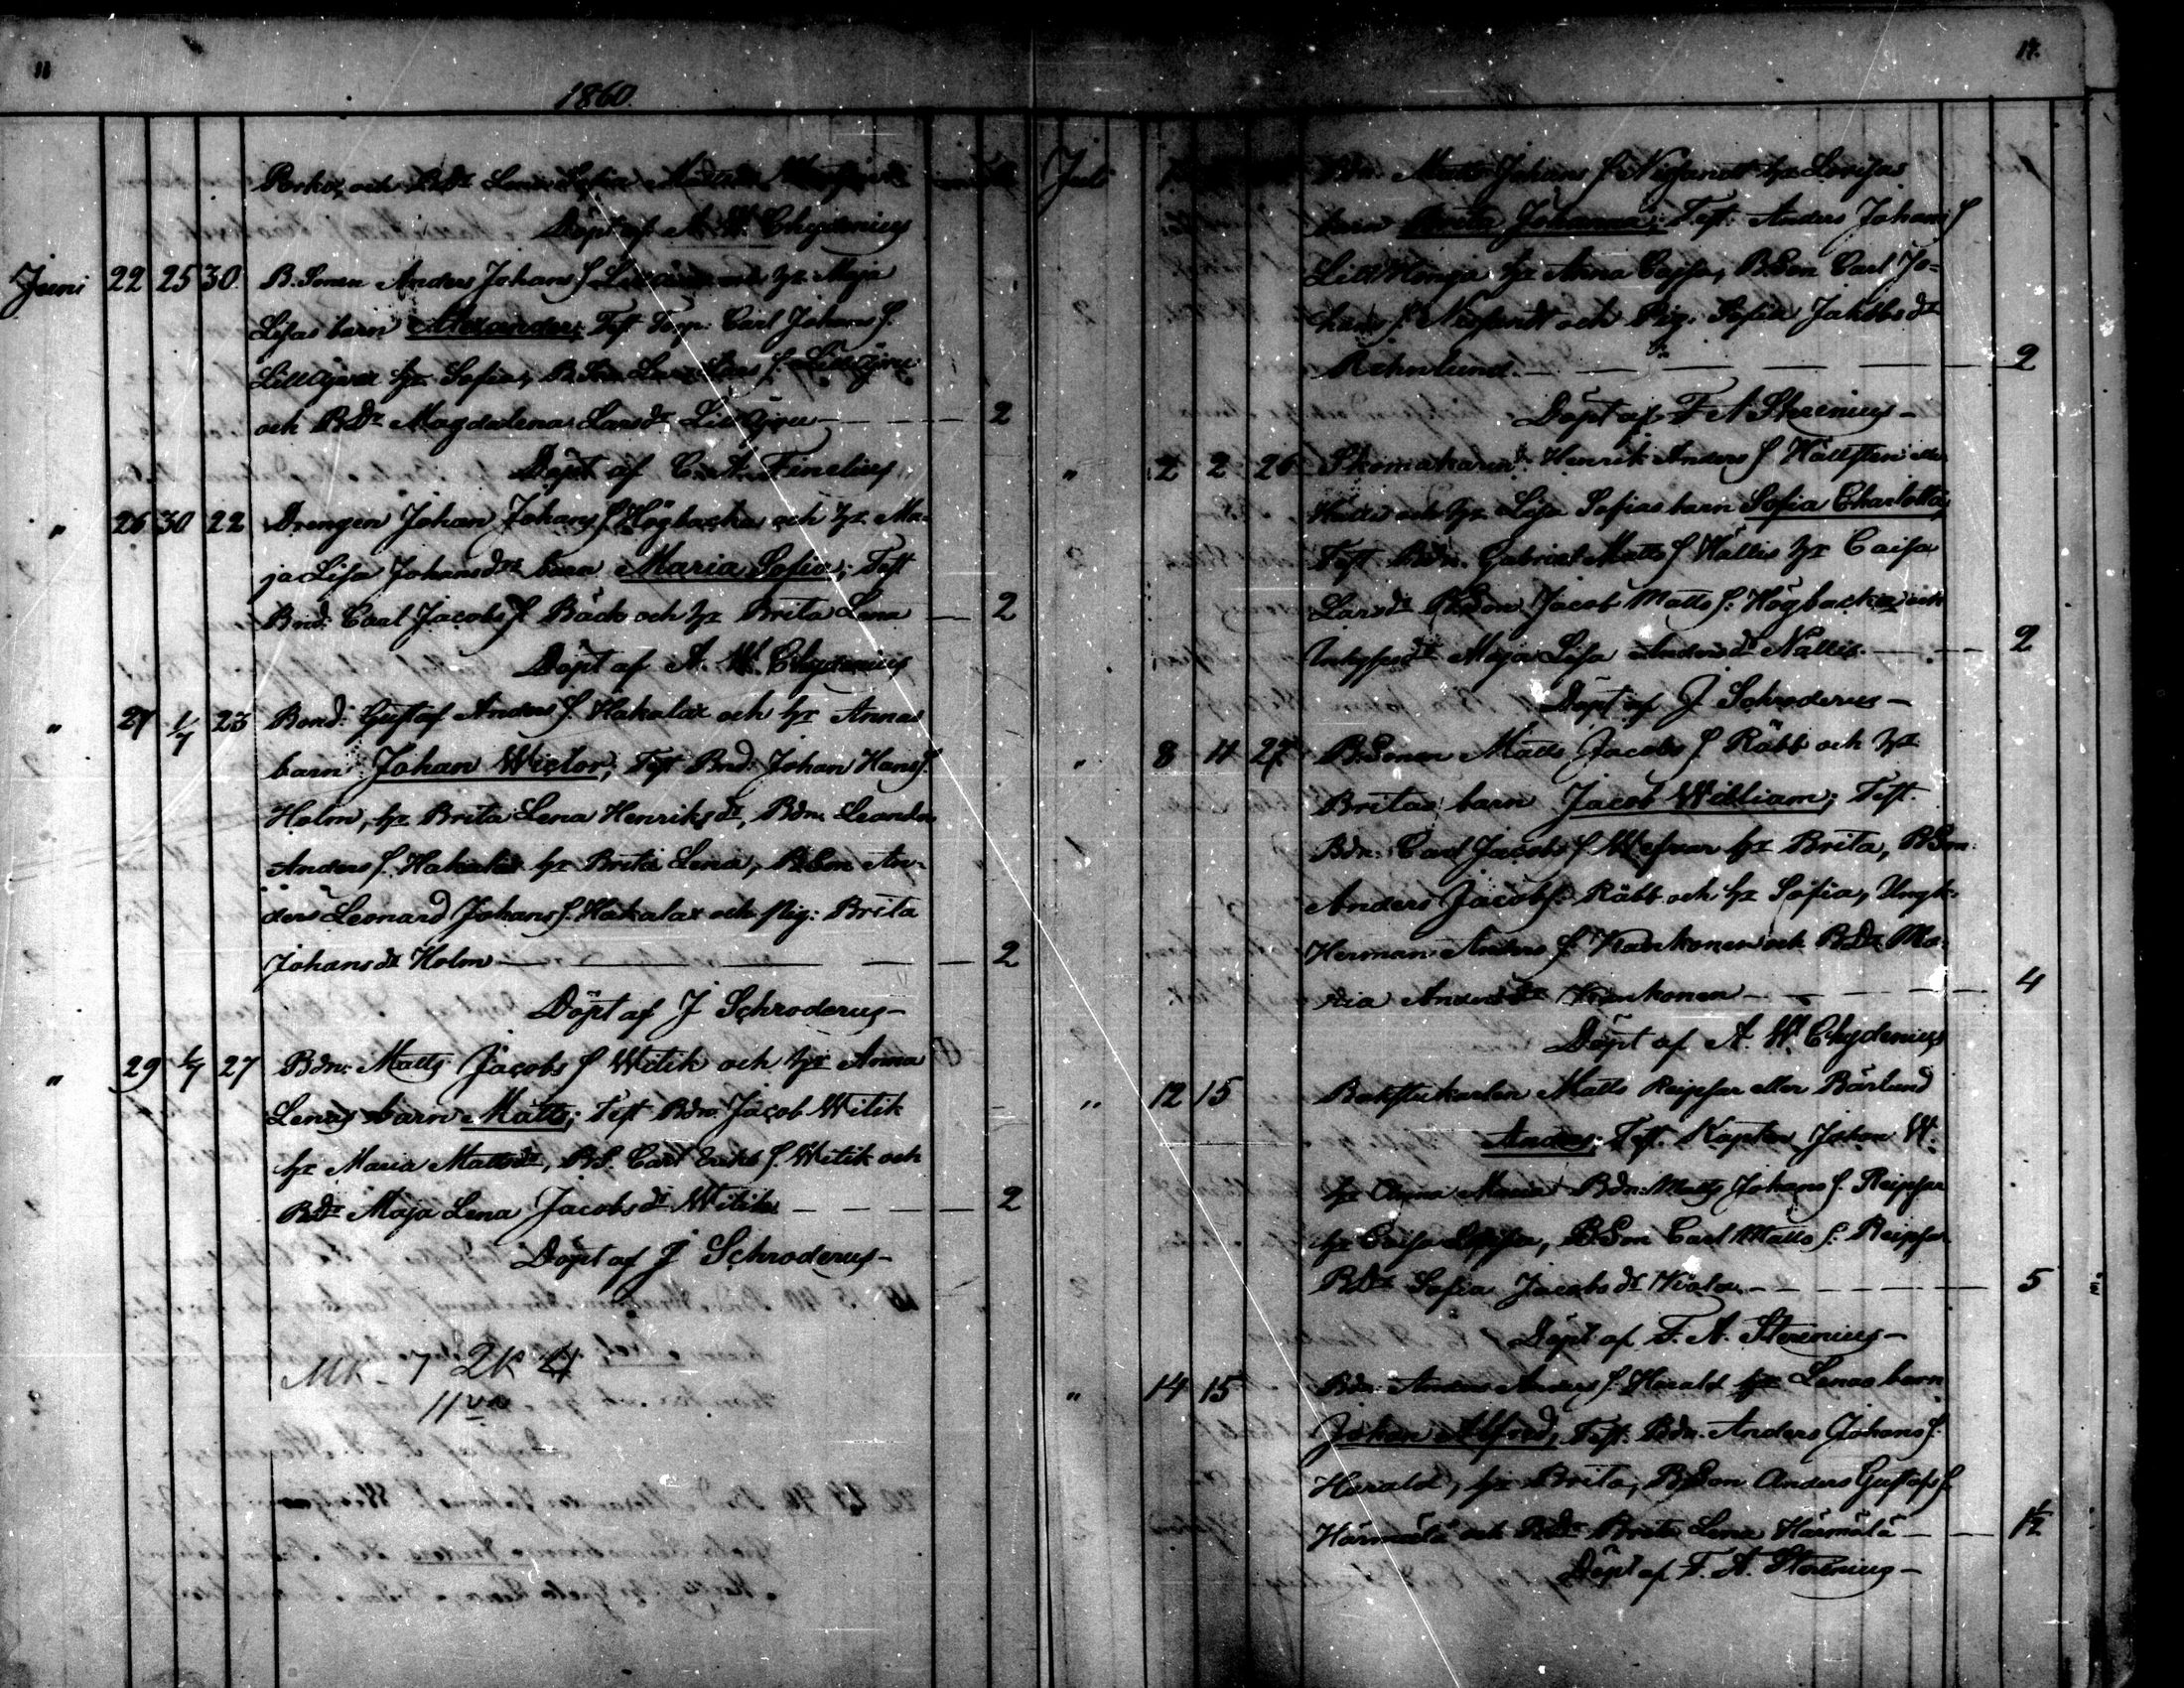 11
1860.
Porko, och BDr Lena Sofia
Döpt af A. W. Chydenius
Juni 22 25 30. B. Sonen Anders Johans S. och hr Maja
Lisas barn Alexander; Test Torp. Carl Johans S.
LillQjre hr Sofia, B. Son Lars Lars S. LillQjre
och BDr Magdalena Larsdr LillQjre — 2
Döpt af C. A. Finelius
" 26 30 22 Drengen Johan Johans S. Högbacka och hr Ma-
ja Lisa Johansdrs barn Maria Sofia; Test
Bnd: Carl Jacobs S. Bäck och hr Brita Lena — 2
Döpt af A. W. Chydenius
" 27 1/7 23 Bond: Gustaf Anders S. Hakalax och hr Annas
barn Johan Wictor; Test Bnd: Johan Hans S.
Holm, hr Brita Lena Henriksdr, Bdn. Leander
Anders S. Hakalax hr Brita Lena, B.Son An-
ders Leonard Johans S. Hakalax och Pig: Brita
Johansdr Holm — 2
Döpt af J Schroderus —
" 29 1/7 27 Bdn. Matts Jacobs S. Witik och hr Anna
Lenas barn Matts; Test Bdn. Jacob Witik
hr Maria Mattsdr, BS. Carl Eriks S. Witik och
BDr Maja Lena Jacobsdr Witik — 2
Döpt af J Schroderus —
MK - 7 2K 4
11
17.
Juli Bdn. Matts Johans S. Nissandt hr Lovisas
barn Johanna; Test. Anders Johans S
Lill hr Anna Cajsa, B.Son Carl Jo-
hans S. och Pig. Sofia Jakobsdr
— 2
Döpt af F A Stenius —
" 2 2 26 Skomakaren Henrik Anders S Hällsten eller
och hr Lisa Sofias barn Sofia Charlotta,
Test. Bdn. Gabriel Matts S Wällis hr Caisa
Larsdr B.Son Jacob Matts S. Högbacka och
Maja Lisa Andersdr Nällis — 2
Döpt af J Schroderus —
" 8 11 27 B.Sonen Matts Jacobs S Räbb och hr
Britas barn Jacob William; Test.
Bdn. Carl Jacobs S Wefvar hr Brita, B.Son.
Anders Jacobs S. Räbb och hr Sofia, Ungk.
Herman Anders S. Kankonen och BDr Ma-
ria Andersdr Kankonen — 4
Döpt af A. W. Chydenius
" 12 15 Backstukarlen Matts Reipsar eller Bärlund
Anders; Test. Kapten Johan W.
hr Anna Maria Bdn: Matts Johans S. Reipsar
hr Caisa B.Son Carl Matts S. Reipsar
BDr Sofia Jacobsdr — 5
Döpt af F. A. Stenius —
" 14 15 Bdn. Anders Anders S. Harald hr Lenas barn
Johan Alfred, Test. Bdn. Anders Johans S.
Harald, hr Brita, B.Son Anders Gustafs S.
Härmälä och BDr Brita Lena Härmälä — 1 1/2
Döpt af F. A. Stenius —